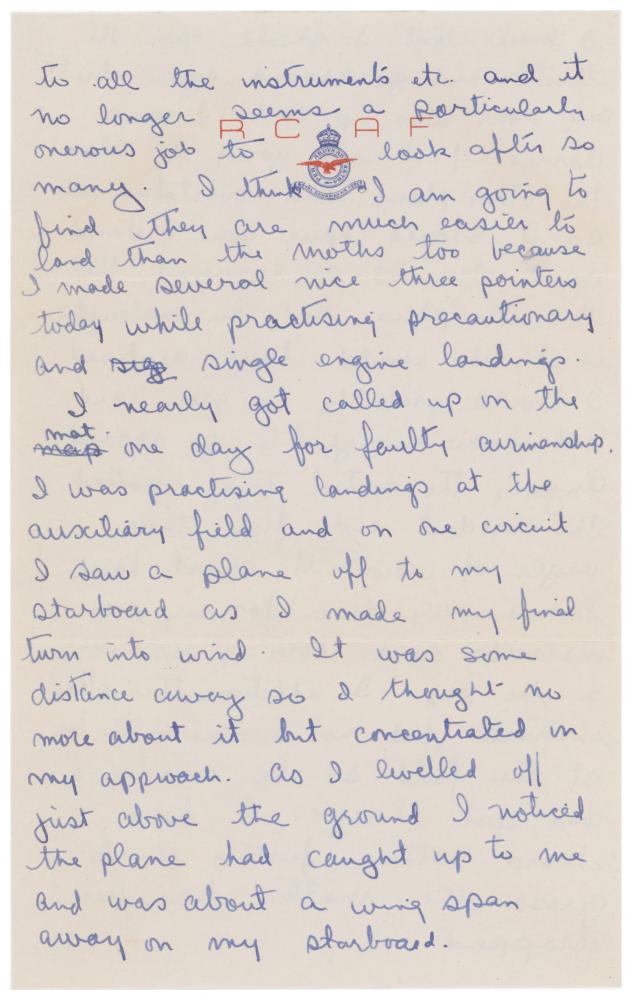 to all the instruments etc and it
no longer seems a particularly
R C A F
onerous job to look after so
many. I think I am going to
find they are much easier to
land than the moths too because
I made several nice three pointers
today while practising precautionary
and sig single engine landings.
I nearly got called up on the
map mat one day for faulty airmanship.
I was practising landings at the
auxiliary field and on one circuit
I saw a plane off to my
starboard as I made my final
turn into wind. It was some
distance away so I thought no
more about it but concentrated on
my approach. As I levelled off
just above the ground I noticed
the plane had caught up to me
and was about a wing span
away on my starboard.